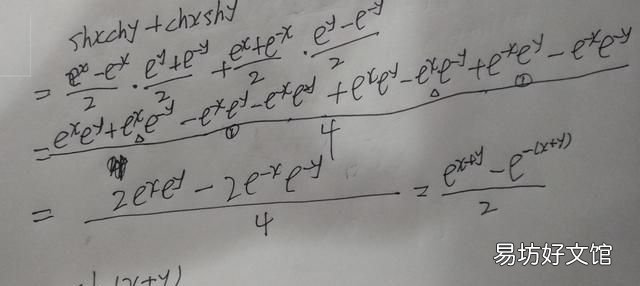 shxchy + chxshy
= (e^x - e^-x)/2 · (e^y + e^-y)/2 + (e^x + e^-x)/2 · (e^y - e^-y)/2
= (e^x e^y + e^x e^-y - e^-x e^y - e^-x e^-y + e^x e^y - e^x e^-y + e^-x e^y - e^-x e^-y)/4
= (2e^x e^y - 2e^-x e^-y)/4 = (e^x+y - e^-(x+y))/2
易坊好文馆
(x+y)